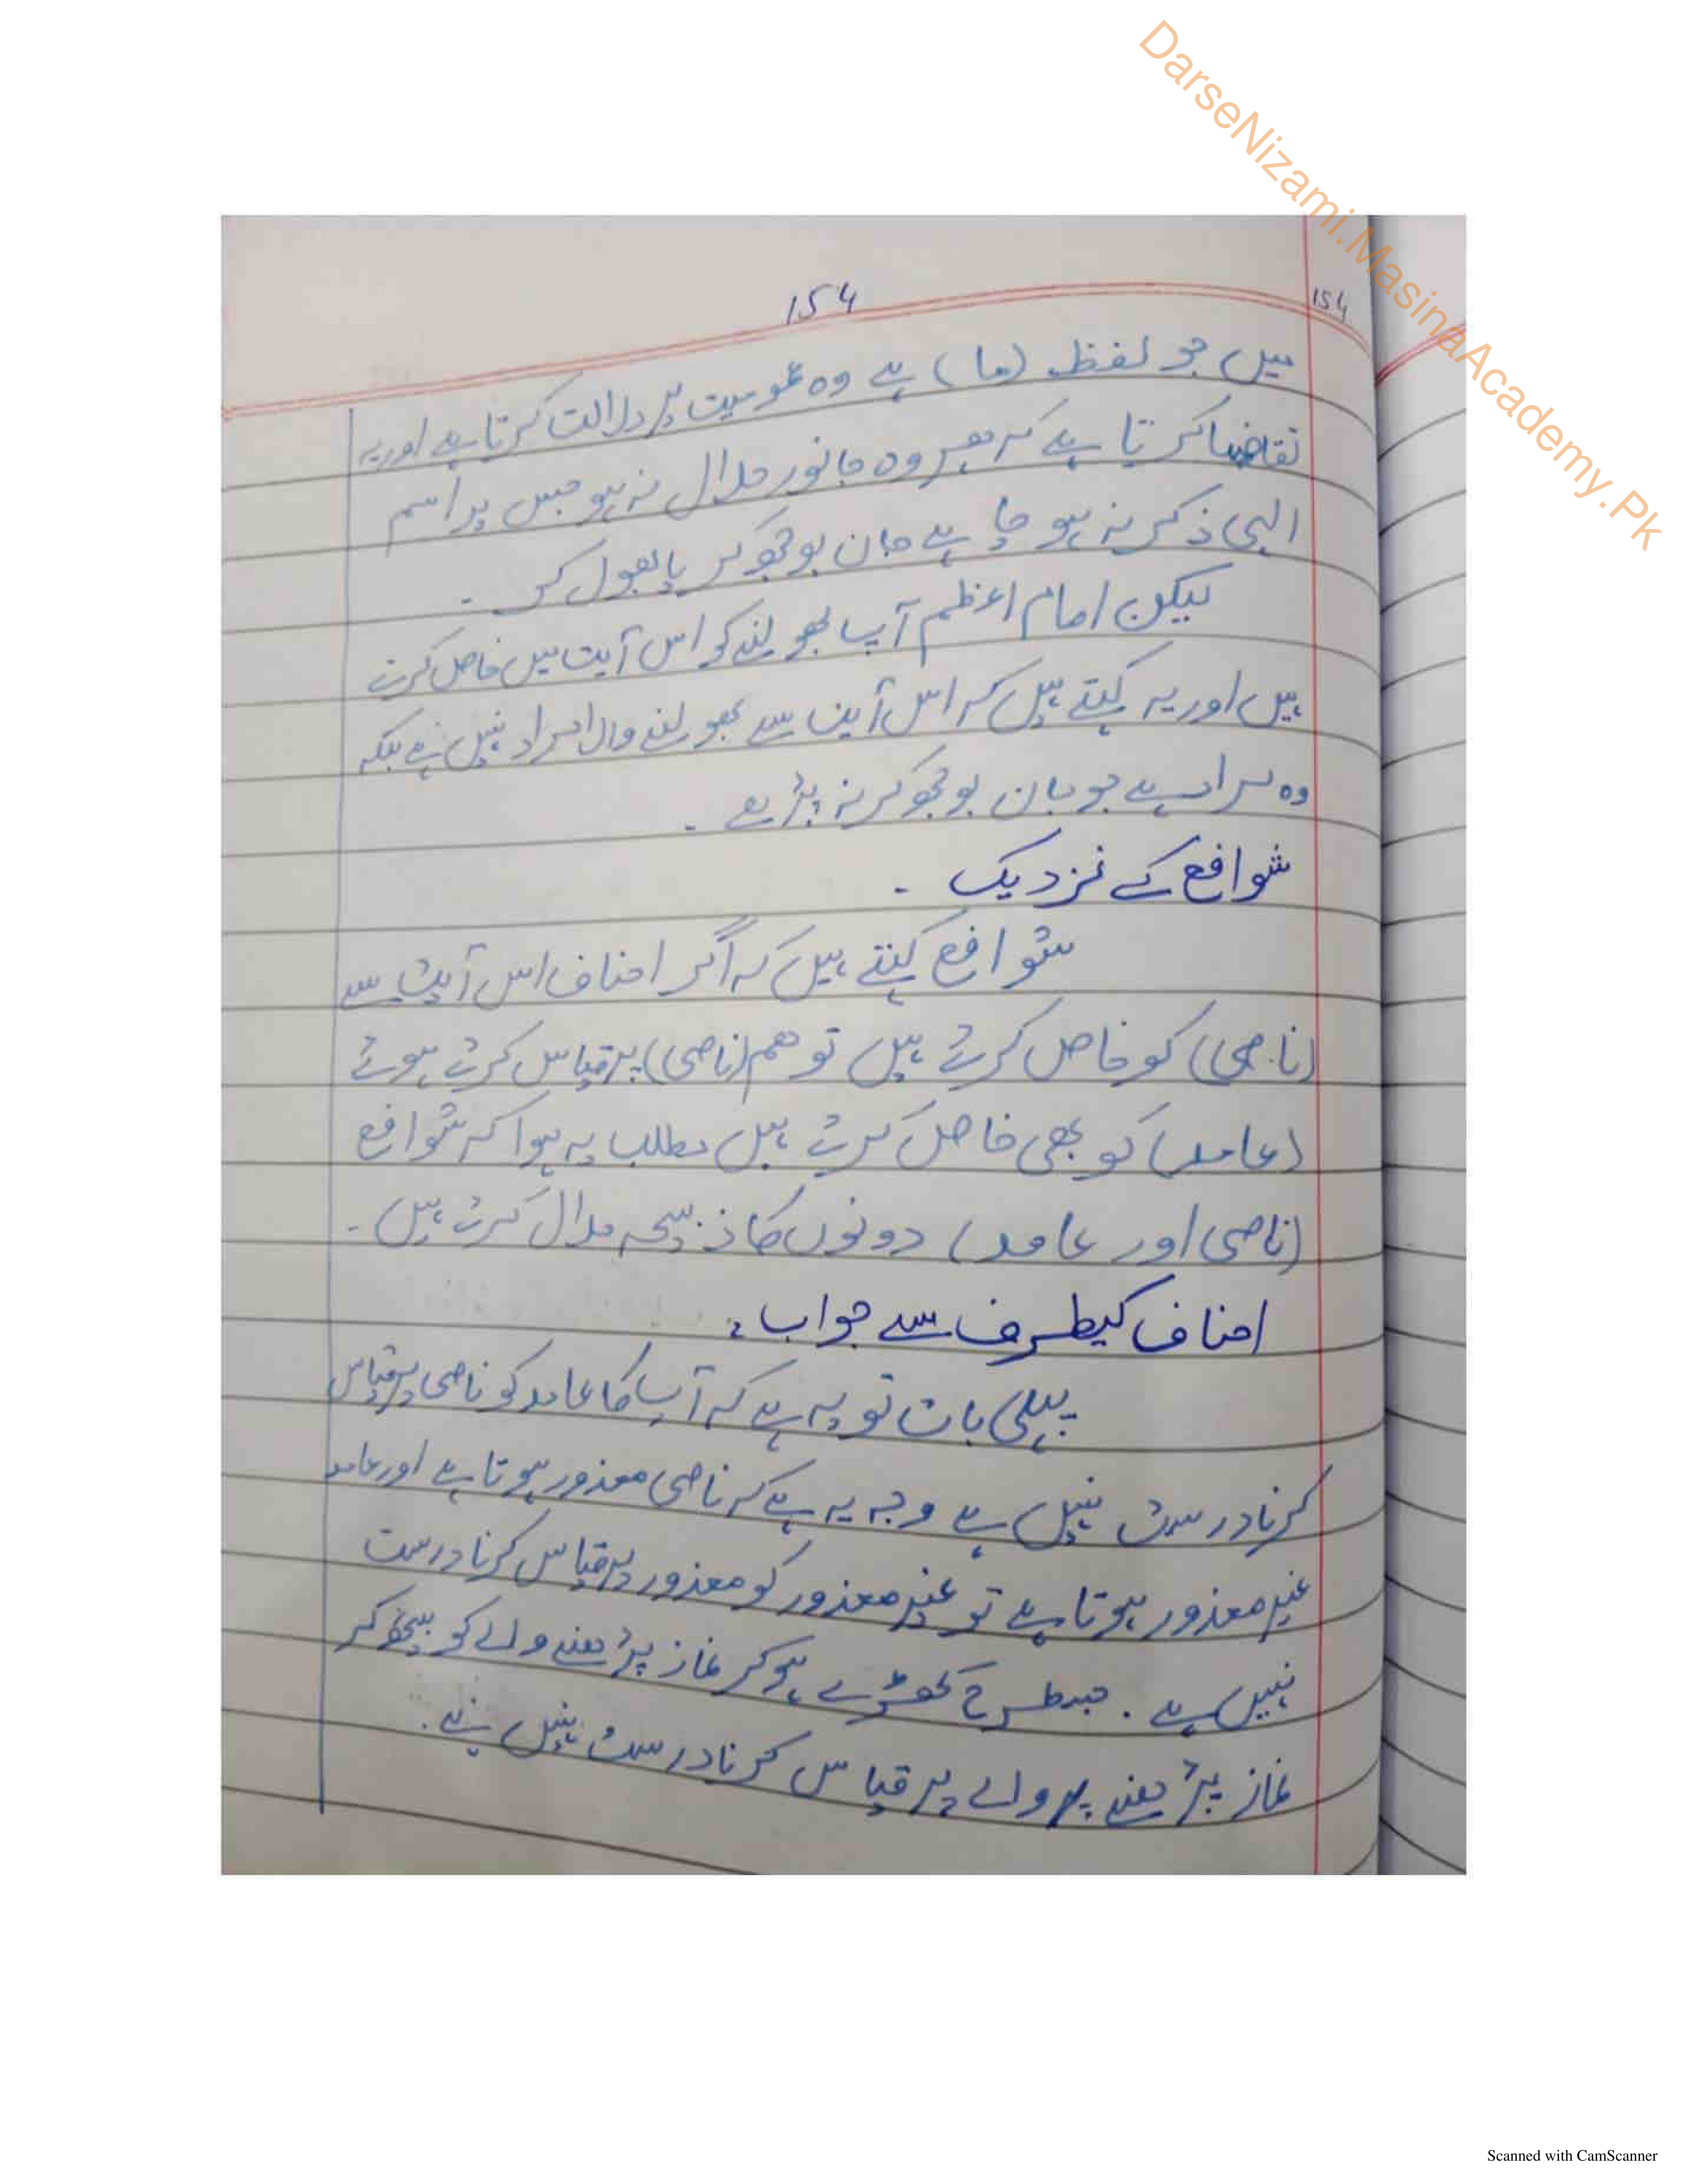 DarseNizami.MasinaAcademy.Pk
154
154
میں جو لفظ (ما) ہے وہ عمومیت پر دلالت کرتا ہے اور یہ
تقاضا کرتا ہے کہ ہر وہ جانور حلال نہ ہو جس پر اسم
الہی ذکر نہ ہو چاہے جان بوجھ کر یا بھول کر ۔
لیکن امام اعظم آپ بھولنے کو اس آیت میں خاص کرتے
ہیں اور یہ کہتے ہیں کہ اس آیت سے بھولنے والا مراد نہیں ہے بلکہ
وہ مراد ہے جو جان بوجھ کر نہ پڑھے ۔
شوافع کے نزدیک ۔
شوافع کہتے ہیں کہ اگر احناف اس آیت سے
(ناصی) کو خاص کرتے ہیں تو ھم (ناصی) پر قیاس کرتے ہوئے
(عامد) کو بھی خاص کرتے ہیں مطلب یہ ہوا کہ شوافع
(ناصی اور عامد) دونوں کا ذبیحہ حلال کرتے ہیں ۔
احناف کیطرف سے جواب :
پہلی بات تو یہ ہے کہ آپ کا عامد کو ناصی پر قیاس
کرنا درست نہیں ہے وجہ یہ ہے کہ ناصی معذور ہوتا ہے اور عامد
غیر معذور ہوتا ہے تو غیر معذور کو معذور پر قیاس کرنا درست
نہیں ہے ۔ جسطرح کھڑے ہو کر نماز پڑھنے والے کو بیٹھ کر
نماز پڑھنے والے پر قیاس کرنا درست نہیں ہے ۔
Scanned with CamScanner